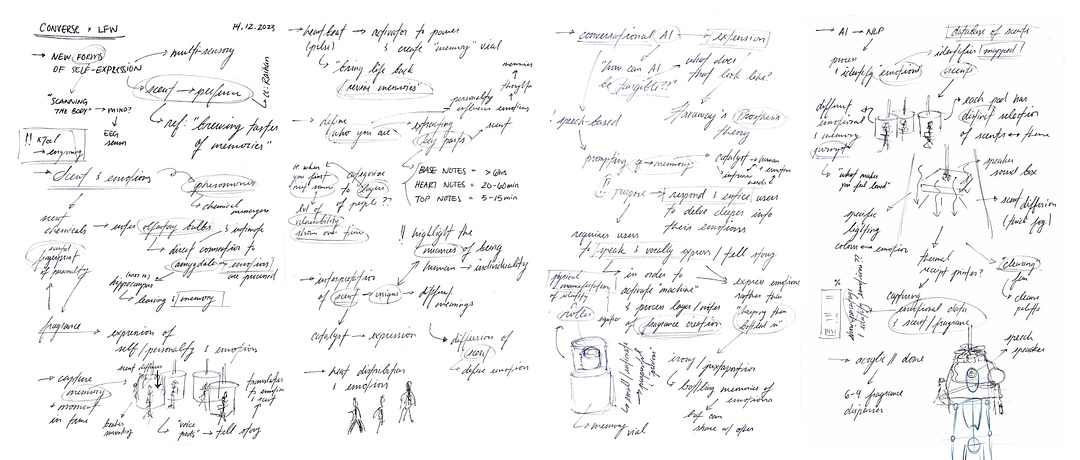 CONVERSE x LFW
14.12.2023
→ NEW FORMS
OF SELF-EXPRESSION
→ multi-sensory
scent → perfume
"SCANNING
THE BODY" → MIND?
EEG
ref: "brewing tastes
of memories"
!! xTool
→ engraving
→ Scent & emotions
pheromones
chemical messengers
scent
chemicals → enter olfactory bulbs & intimate
direct connection to
amygdala → emotions
are processed
scented
fingerprint
of personality
hippocampus
learning & memory
fragrance → expression of
self/personality & emotion
→ capture
memory
+ moment
in time
scent diffusers
"voice
pods" → tell story
translates
to emotion
& scent
→ heartbeat → activator to power
(pulse) & create "memory" vial
"bring life back
revive memories"
memories
thoughts
personality
influences emotions
→ define
who you are
expressing
self
scent
categorise
to layers
of people??
BASE NOTES = > 6hrs
HEART NOTES = 20-60min
TOP NOTES = 5-15min
vulnerability
shown over time
!! highlight the
nuances of being
human → individuality
→ interpretation
of scent → unique → different
meanings
catalyst → expression
diffusion of
scent
define emotion
→ heat distribution
& emotion
→ conversational AI → expression
"how can AI
be tangible??"
what does
that look like?
Haraway's Prosthesis
theory
! speech-based
prompting memory
catalyst → human
+ emotion
purpose → respond & entice users
to delve deeper into
their emotions
requires users
to speak & vocally express / tell story
physical
manifestation
of identity
→ in order to
activate "machine"
& process layer/notes
of fragrance creation
express emotions
rather than
"keeping them
bottled in"
irony / juxtaposition
bottling memories of
emotions
but can
share w/ others
→ memory
vial
→ AI → NLP
process
& identify "emotions"
database of scents
identifies mapped
scents
different
emotional
& memory
prompts
"what makes
you feel loved"
each pod has
distinct selection
of scents & theme
speaker
sound box
scent diffusion
(thick fog)
specific
lighting
colour = emotion
thermal
receipt printer?
"cleaning"
fan
cleanse
palette
capturing
emotional data
& scent/fragrance
speech
speaker
→ acrylic // dome
6-9 fragrance
dispenser